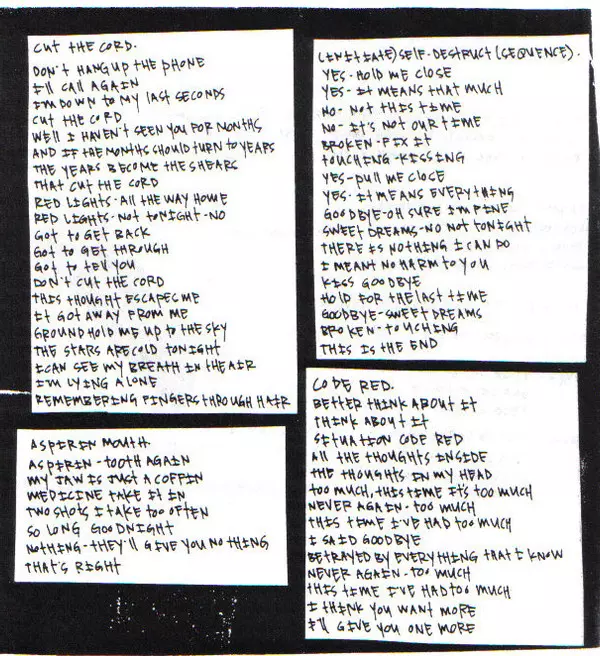 CUT THE CORD.
DON'T HANG UP THE PHONE
I'LL CALL AGAIN
I'M DOWN TO MY LAST SECONDS
CUT THE CORD
WELL I HAVEN'T SEEN YOU FOR MONTHS
AND IF THE MONTHS SHOULD TURN TO YEARS
THE YEARS BECOME THE SHEARS
THAT CUT THE CORD
RED LIGHTS-ALL THE WAY HOME
RED LIGHTS-NOT TONIGHT-NO
GOT TO GET BACK
GOT TO GET THROUGH
GOT TO TELL YOU
DON'T CUT THE CORD
THIS THOUGHT ESCAPES ME
IT GOT AWAY FROM ME
GROUND HOLD ME UP TO THE SKY
THE STARS ARE COLD TONIGHT
I CAN SEE MY BREATH IN THE AIR
I'M LYING ALONE
REMEMBERING FINGERS THROUGH HAIR
ASPIRIN MOUTH
ASPIRIN-TOOTH AGAIN
MY JAW IS JUST A COFFIN
MEDICINE TAKE IT IN
TWO SHOTS I TAKE TOO OFTEN
SO LONG GOODNIGHT
NOTHING-THEY'LL GIVE YOU NOTHING
THAT'S RIGHT
(INITIATE) SELF-DESTRUCT (SEQUENCE).
YES-HOLD ME CLOSE
YES-IT MEANS THAT MUCH
NO-NOT THIS TIME
NO-IT'S NOT OUR TIME
BROKEN-FIX IT
TOUCHING-KISSING
YES-PULL ME CLOSE
YES-IT MEANS EVERYTHING
GOODBYE-OH SURE I'M FINE
SWEET DREAMS-NO NOT TONIGHT
THERE IS NOTHING I CAN DO
I MEANT NO HARM TO YOU
KISS GOODBYE
HOLD FOR THE LAST TIME
GOODBYE-SWEET DREAMS
BROKEN-TOUCHING
THIS IS THE END
CODE RED.
BETTER THINK ABOUT IT
THINK ABOUT IT
SITUATION CODE RED
ALL THE THOUGHTS INSIDE
THE THOUGHTS IN MY HEAD
TOO MUCH, THIS TIME IT'S TOO MUCH
NEVER AGAIN-TOO MUCH
THIS TIME I'VE HAD TOO MUCH
I SAID GOODBYE
BETRAYED BY EVERYTHING THAT I KNOW
NEVER AGAIN-TOO MUCH
THIS TIME I'VE HAD TOO MUCH
I THINK YOU WANT MORE
I'LL GIVE YOU ONE MORE